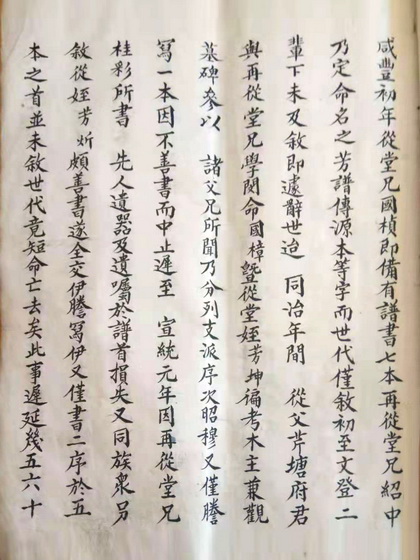 咸豐初年從堂兄國楨即備有譜書七本再從堂兄紹中
乃定命名之芳譜傳源木等字而世代僅敘初至文登二
輩下未及敘即遽辭世迨 同治年間 從父芹塘府君
與再從堂兄學閔命國樟暨從堂姪芳坤徧考木主兼觀
墓碑參以 諸父兄所聞乃分列支派序次昭穆又僅謄
寫一本因不善書而中止遲至 宣統元年因再從堂兄
桂彩所書 先人遺器及遺囑於譜首損失又同族衆另
敘從姪芳炘頗善書遂全交伊謄寫伊又僅書二序於五
本之首並未敘世代竟短命亡去矣此事遲延幾五六十